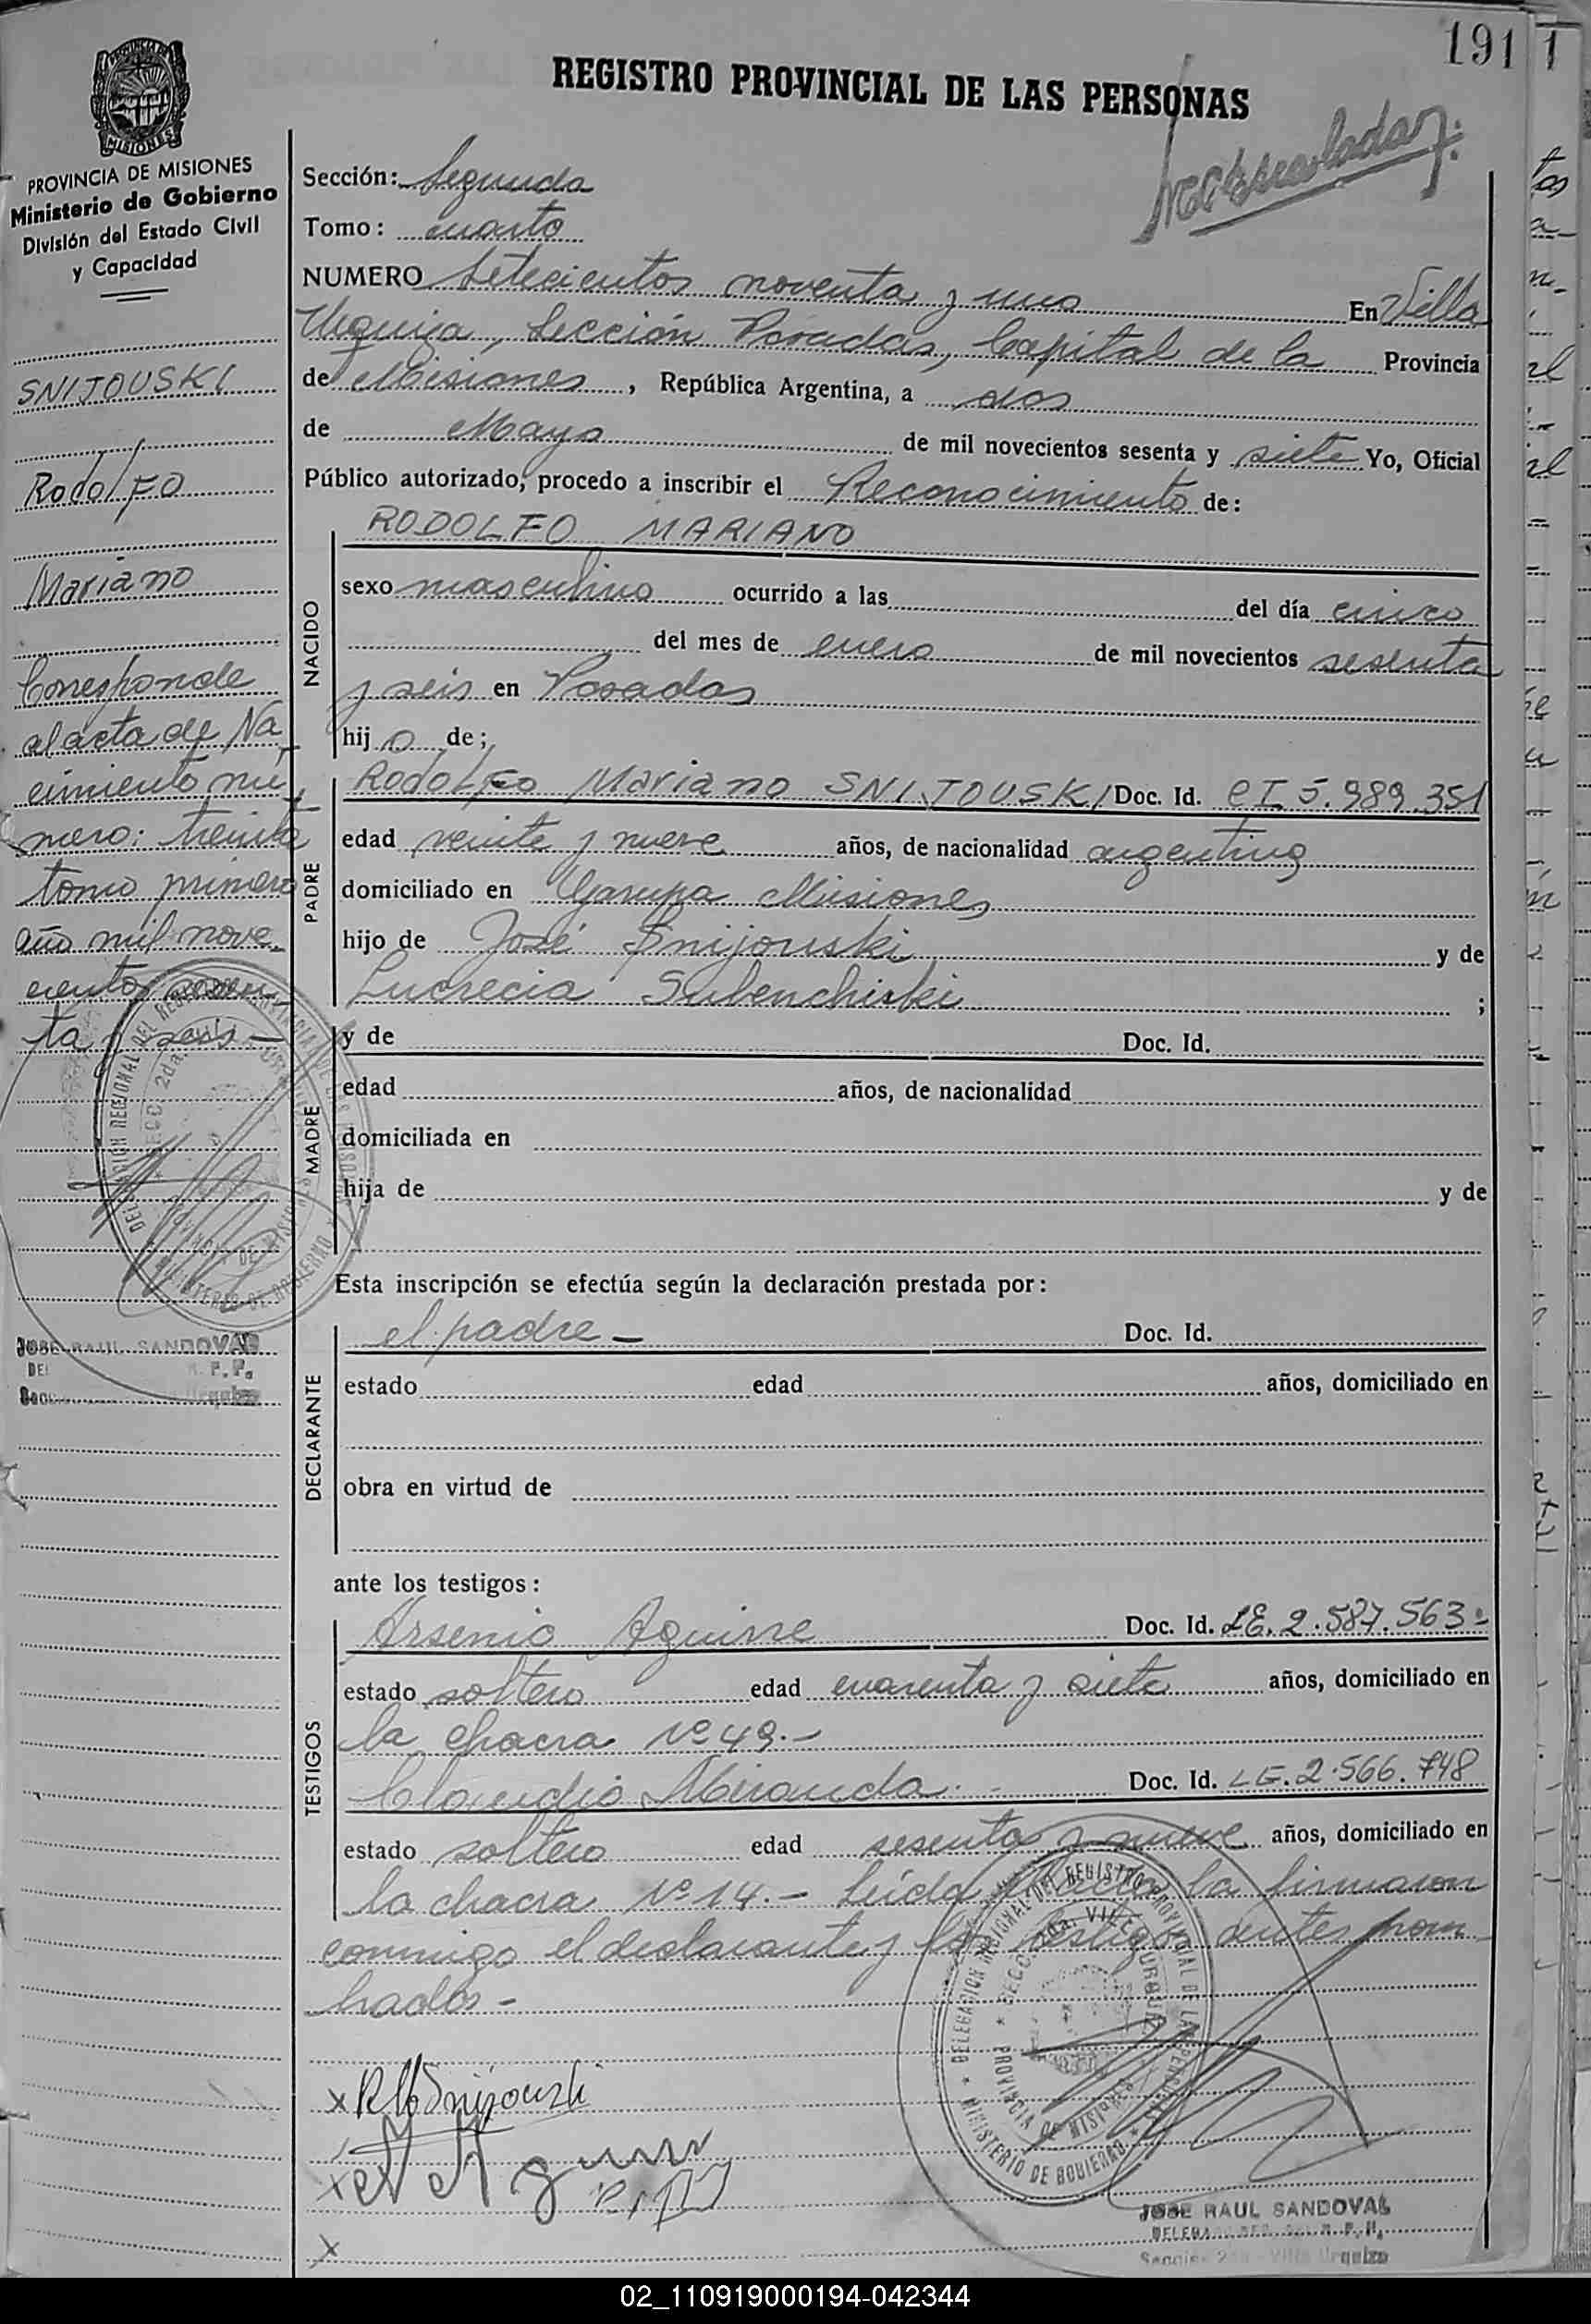 191 1
REGISTRO PROVINCIAL DE LAS PERSONAS
PROVINCIA DE MISIONES
Ministerio de Gobierno
División del Estado Civil
y Capacidad
SNIJOUSKI
Rodolfo
Mariano
Corresponde
al acta de Na
cimiento nú
mero: treinta
tomo primero
año mil nove
cientos sesen
ta y seis -
JOSE RAUL SANDOVAL
Sección: Segunda
Tomo: cuarto
NUMERO Setecientos noventa y uno En Villa
Urquiza, Sección Posadas, Capital de la Provincia
de Misiones, República Argentina, a dos
de Mayo de mil novecientos sesenta y siete Yo, Oficial
Público autorizado, procedo a inscribir el Reconocimiento de:
NACIDO
RODOLFO MARIANO
sexo masculino ocurrido a las del día cinco
del mes de enero de mil novecientos sesenta
y seis en Posadas
hij o de;
PADRE
Rodolfo Mariano SNIJOUSKI Doc. Id. CI 5.989.351
edad veinte y nueve años, de nacionalidad argentina
domiciliado en Garupa Misiones
hijo de José Snijouski y de
Lucrecia Subenchiski ;
MADRE
y de Doc. Id.
edad años, de nacionalidad
domiciliada en
hija de y de
Esta inscripción se efectúa según la declaración prestada por:
DECLARANTE
el padre - Doc. Id.
estado edad años, domiciliado en
obra en virtud de
ante los testigos:
TESTIGOS
Arsenio Aguirre Doc. Id. LE. 2.587.563-
estado soltero edad cuarenta y siete años, domiciliado en
la chacra Nº 49.-
Claudio Miranda.- Doc. Id. LE. 2.566.748
estado soltero edad sesenta y nueve años, domiciliado en
la chacra Nº 14.- Leída la firmaron
conmigo el declarante y los testigos antes nom
brados -
DELEGACION REGIONAL DEL REGISTRO PROVINCIAL DE LAS PERSONAS
MINISTERIO DE GOBIERNO
SECC. 2da. VILLA URQUIZA
PROVINCIA DE MISIONES
JOSE RAUL SANDOVAL
Villa Urquiza
02_110919000194-042344